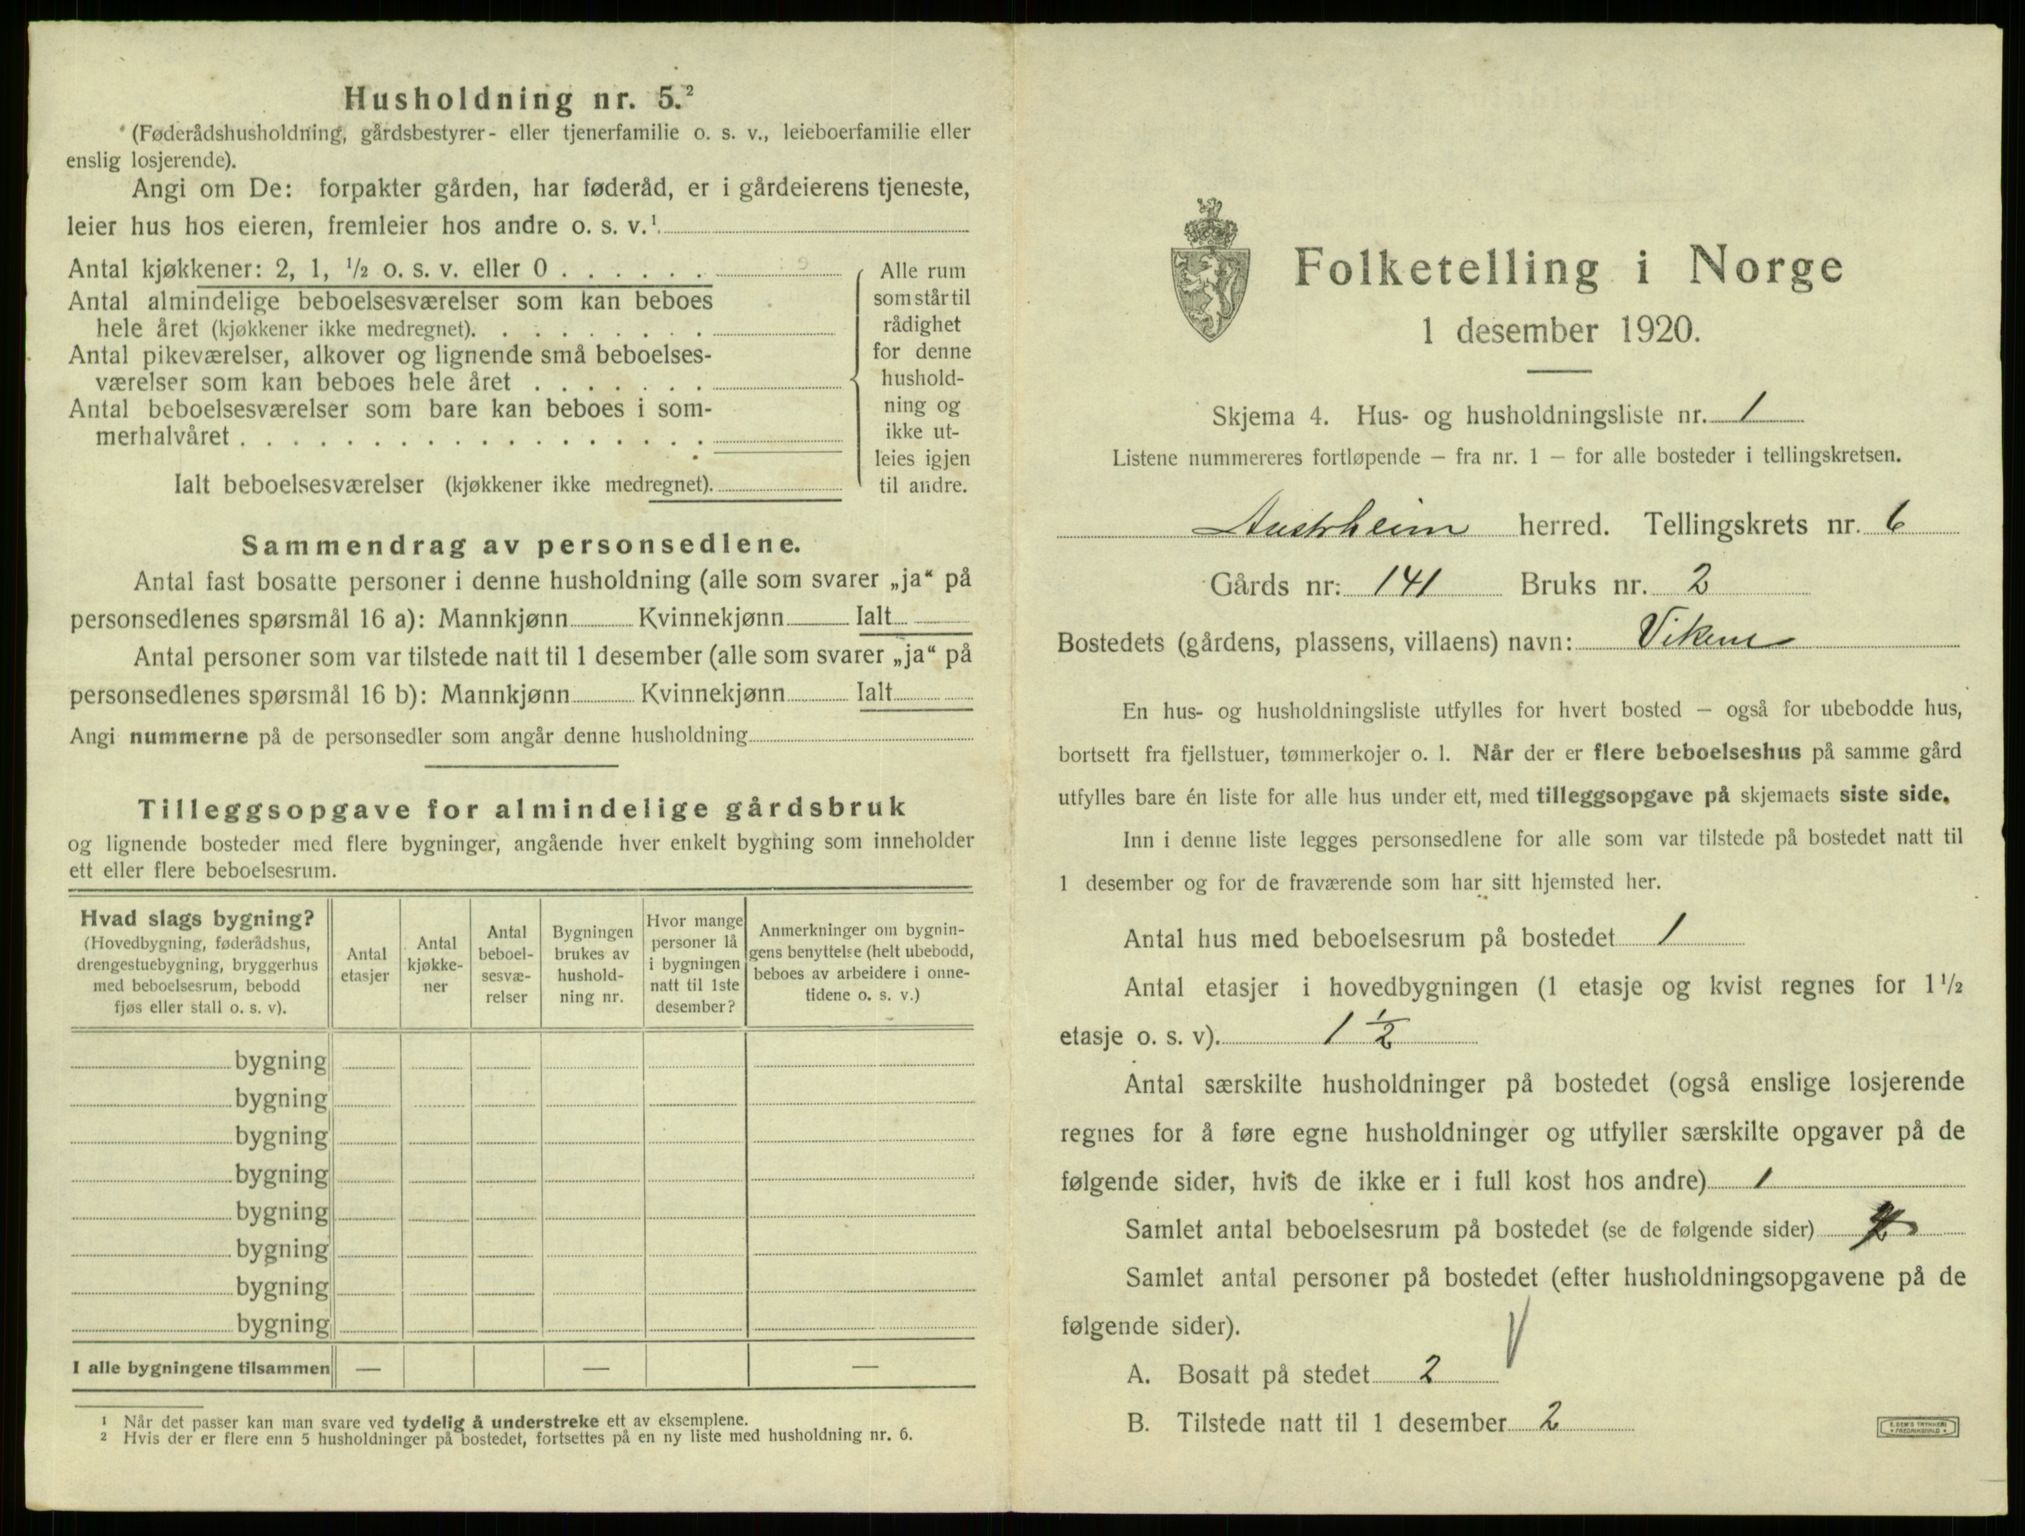 Husholdning nr. 5.²
(Føderådshusholdning, gårdsbestyrer- eller tjenerfamilie o. s. v., leieboerfamilie eller
enslig losjerende).
Angi om De: forpakter gården, har føderåd, er i gårdeierens tjeneste,
leier hus hos eieren, fremleier hos andre o. s. v.¹
Antal kjøkkener: 2, 1, ½ o. s. v. eller 0 . . . . . .
Antal almindelige beboelsesværelser som kan beboes
hele året (kjøkkener ikke medregnet). . . . . . . . .
Antal pikeværelser, alkover og lignende små beboelses-
værelser som kan beboes hele året . . . . . . .
Antal beboelsesværelser som bare kan beboes i som-
merhalvåret . . . . . . . . . . . . . . . . . .
Ialt beboelsesværelser (kjøkkener ikke medregnet).
Alle rum
som står til
rådighet
for denne
hushold-
ning og
ikke ut-
leies igjen
til andre.
Sammendrag av personsedlene.
Antal fast bosatte personer i denne husholdning (alle som svarer „ja“ på
personsedlenes spørsmål 16 a): Mannkjønn Kvinnekjønn Ialt
Antal personer som var tilstede natt til 1 desember (alle som svarer „ja“ på
personsedlenes spørsmål 16 b): Mannkjønn Kvinnekjønn Ialt
Angi nummerne på de personsedler som angår denne husholdning
Tilleggsopgave for almindelige gårdsbruk
og lignende bosteder med flere bygninger, angående hver enkelt bygning som inneholder
ett eller flere beboelsesrum.
Hvad slags bygning?
(Hovedbygning, føderådshus,
drengestuebygning, bryggerhus
med beboelsesrum, bebodd
fjøs eller stall o. s. v).
Antal
etasjer
Antal
kjøkke-
ner
Antal
beboel-
sesvæ-
relser
Bygningen
brukes av
hushold-
ning nr.
Hvor mange
personer lå
i bygningen
natt til 1ste
desember?
Anmerkninger om bygnin-
gens benyttelse (helt ubebodd,
beboes av arbeidere i onne-
tidene o. s. v.)
bygning
bygning
bygning
bygning
bygning
bygning
bygning
bygning
I alle bygningene tilsammen — — —
¹ Når det passer kan man svare ved tydelig å understreke ett av eksemplene.
² Hvis der er flere enn 5 husholdninger på bostedet, fortsettes på en ny liste med husholdning nr. 6.
Folketelling i Norge
1 desember 1920.
Skjema 4. Hus- og husholdningsliste nr. 1
Listene nummereres fortløpende – fra nr. 1 – for alle bosteder i tellingskretsen.
Austrheim herred. Tellingskrets nr. 6
Gårds nr: 141 Bruks nr. 2
Bostedets (gårdens, plassens, villaens) navn: Vikene
En hus- og husholdningsliste utfylles for hvert bosted – også for ubebodde hus,
bortsett fra fjellstuer, tømmerkojer o. l. Når der er flere beboelseshus på samme gård
utfylles bare én liste for alle hus under ett, med tilleggsopgave på skjemaets siste side.
Inn i denne liste legges personsedlene for alle som var tilstede på bostedet natt til
1 desember og for de fraværende som har sitt hjemsted her.
Antal hus med beboelsesrum på bostedet 1
Antal etasjer i hovedbygningen (1 etasje og kvist regnes for 1 ½
etasje o. s. v). 1 ½
Antal særskilte husholdninger på bostedet (også enslige losjerende
regnes for å føre egne husholdninger og utfyller særskilte opgaver på de
følgende sider, hvis de ikke er i full kost hos andre) 1
Samlet antal beboelsesrum på bostedet (se de følgende sider)
Samlet antal personer på bostedet (efter husholdningsopgavene på de
følgende sider).
A. Bosatt på stedet 2
B. Tilstede natt til 1 desember 2
E. SEM'S TRYKKERI
FREDRIKSHALD